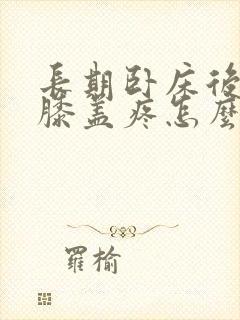 長期卧床後
膝盖疼怎麼
羅榆